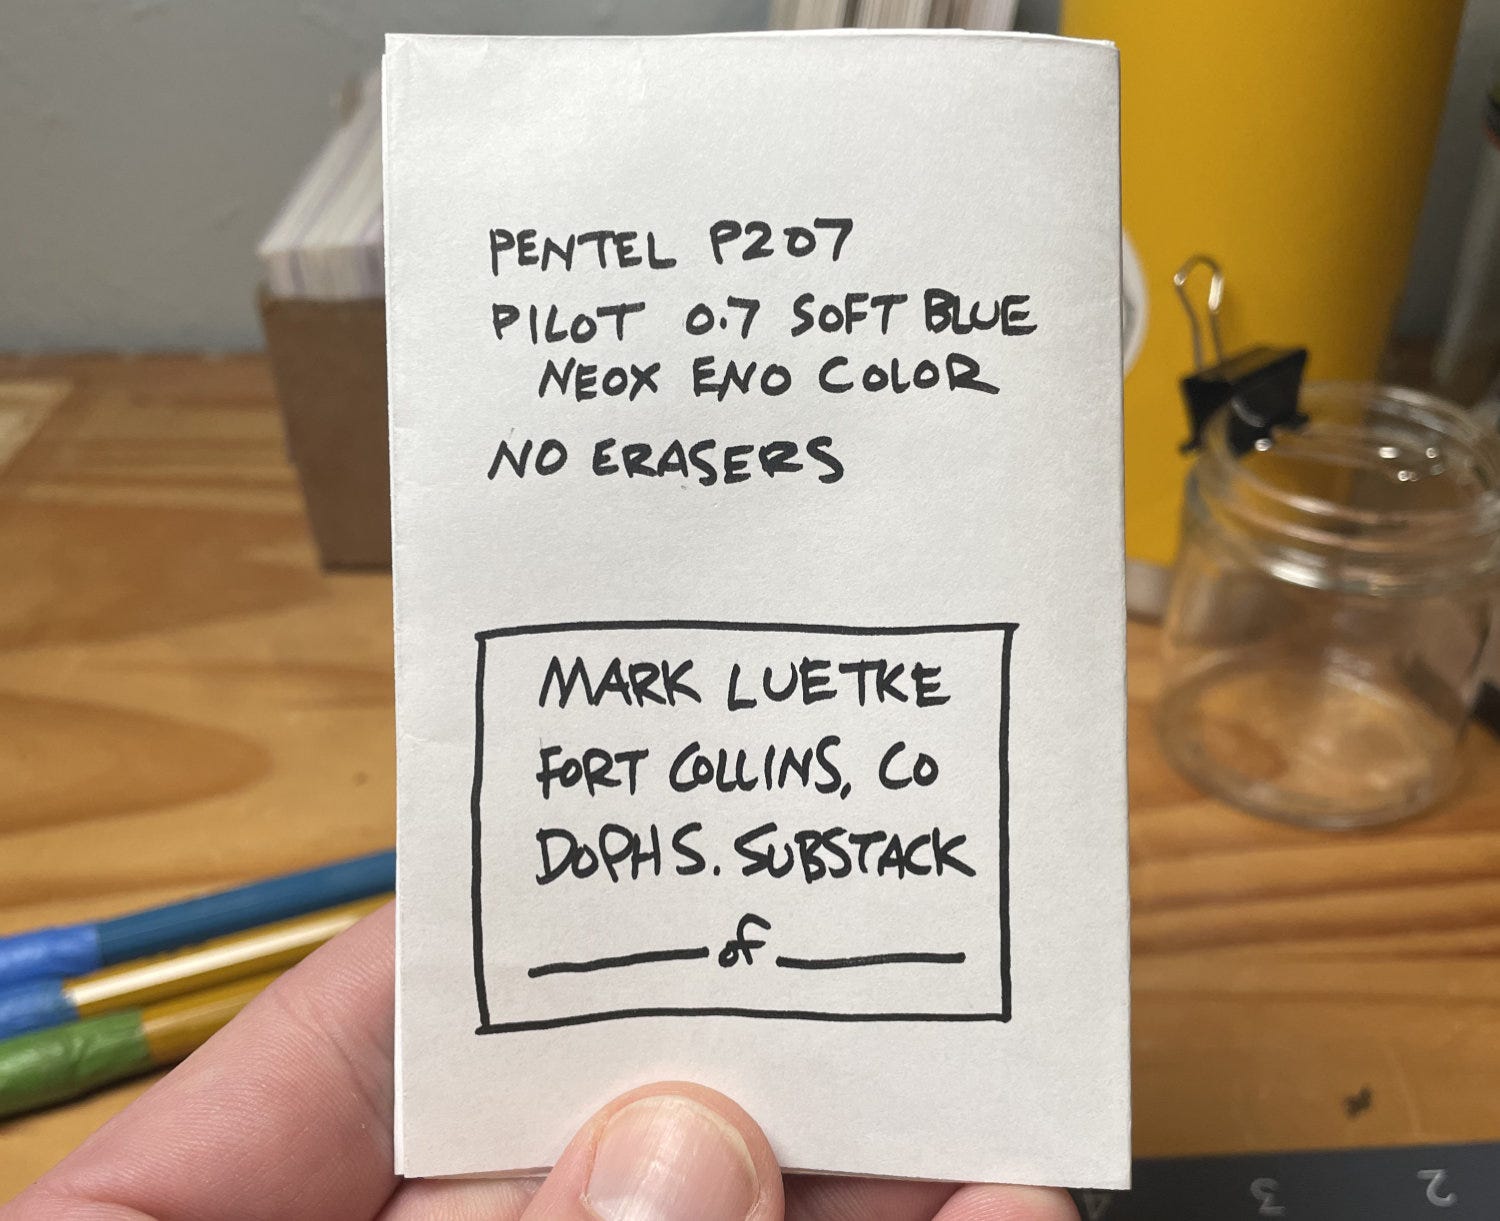 PENTEL P207
PILOT 0.7 SOFT BLUE
NEOX ENO COLOR
NO ERASERS
MARK LUETKE
FORT COLLINS, CO
DOPHS. SUBSTACK
____ of ____
4 3 2